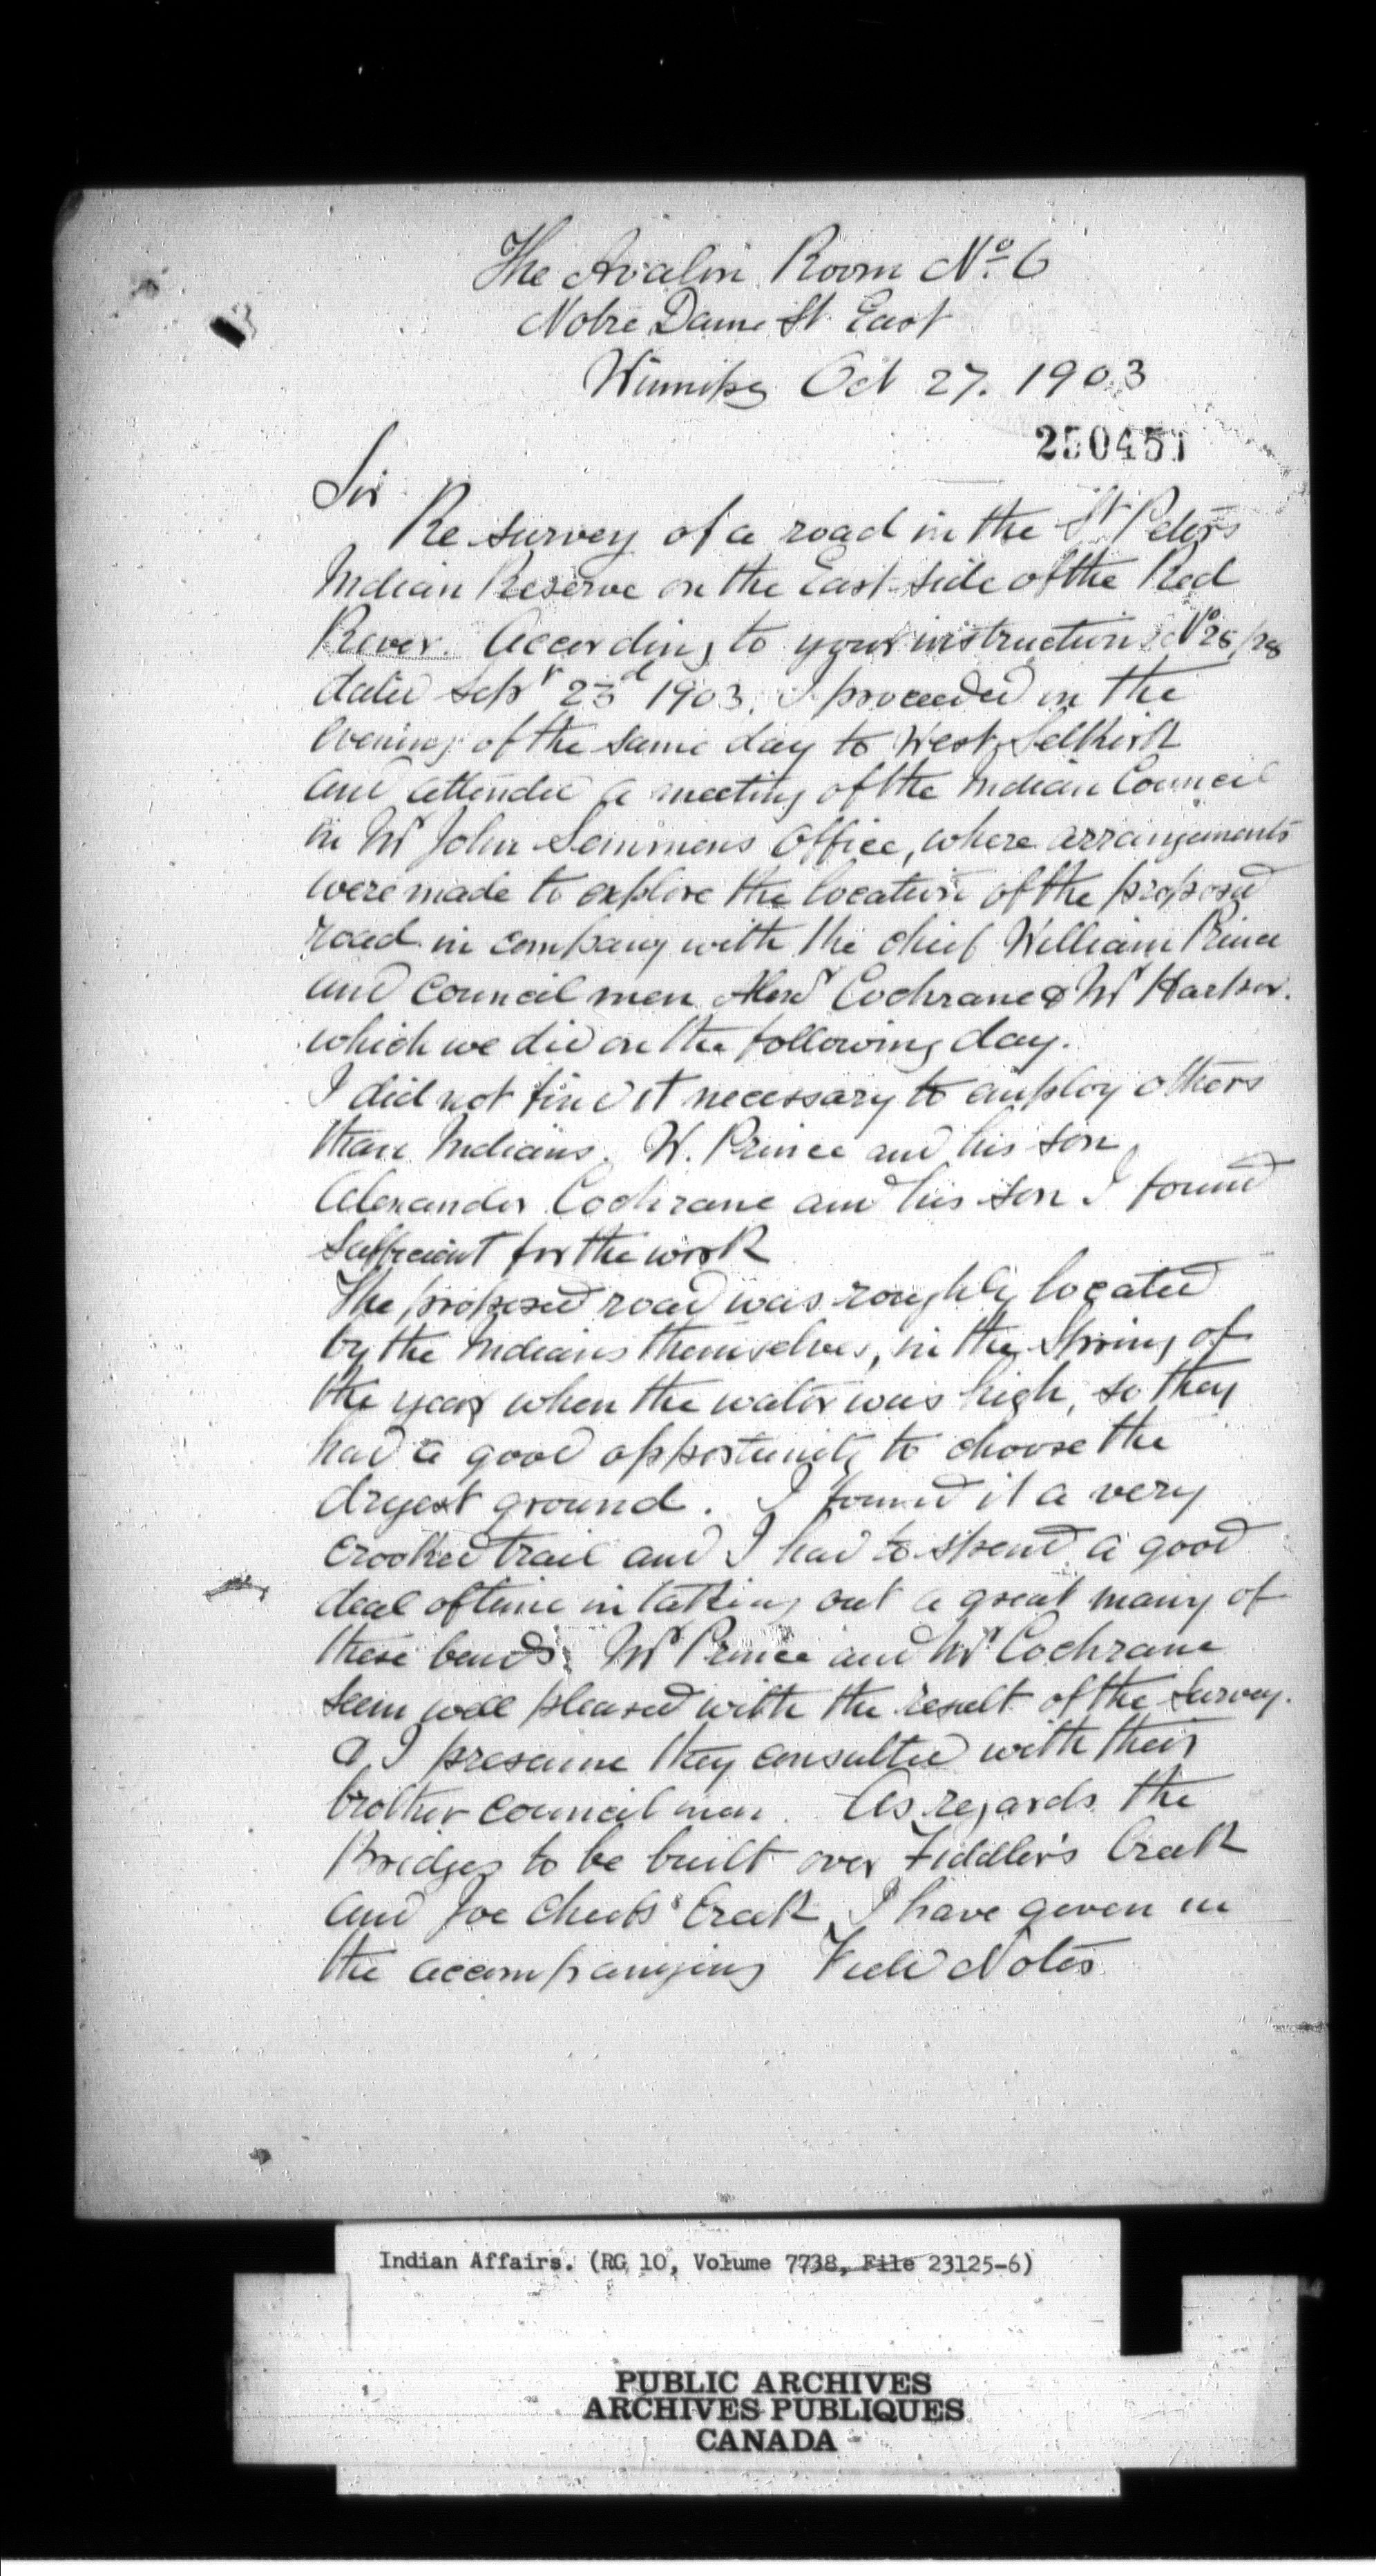 The Avalon Room No. 6
Notre Dame St East
Winnipeg Oct 27. 1903
250451
Sir
Re survey of a road in the St Peters
Indian Reserve on the East side of the Red
River. According to your instructions No
dated Sept 23d 1903. I proceeded in the
evening of the same day to West Selkirk
and attended a meeting of the Indian Council
in Mr John Semmens Office, where arrangements
were made to explore the location of the proposed
road in company with the chief William Prince
and Council men Alexr Cochrane & Mr Harper.
which we did on the following day.
I did not find it necessary to employ others
than Indians. W. Prince and his son
Alexander Cochrane and his son I found
sufficient for the work
The proposed road was roughly located
by the Indians themselves, in the Spring of
the year when the water was high, so they
had a good opportunity to choose the
dryest ground. I found it a very
crooked trail and I had to spend a good
deal of time in taking out a great many of
these bends. Mr Prince and Mr Cochrane
seem well pleased with the result of the survey.
& I presume they consulted with their
brother council men. As regards the
Bridges to be built over Fiddler's Creek
and Joe Cheeks' Creek I have given in
the accompanying Field Notes
Indian Affairs. (RG 10, Volume 7738, File 23125-6)
PUBLIC ARCHIVES
ARCHIVES PUBLIQUES
CANADA